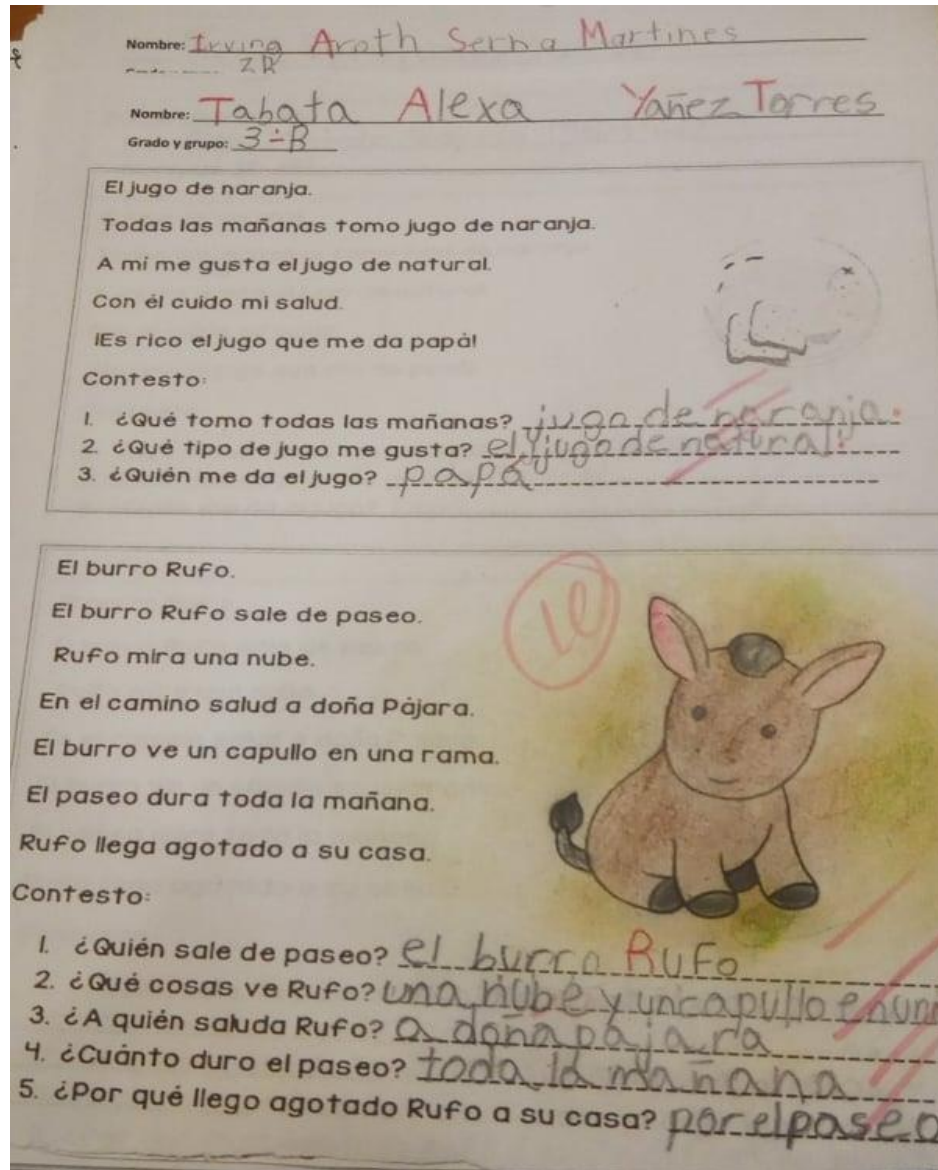 Nombre: Irving Aroth Serna Martines
2 B
Nombre: Tabata Alexa Yañez Torres
Grado y grupo: 3 ÷ B
El jugo de naranja.
Todas las mañanas tomo jugo de naranja.
A mí me gusta el jugo de natural.
Con él cuido mi salud.
¡Es rico el jugo que me da papá!
Contesto:
1. ¿Qué tomo todas las mañanas? jugo de naranja.
2. ¿Qué tipo de jugo me gusta? el jugo de natural.
3. ¿Quién me da el jugo? papá
El burro Rufo.
10
El burro Rufo sale de paseo.
Rufo mira una nube.
En el camino salud a doña Pájara.
El burro ve un capullo en una rama.
El paseo dura toda la mañana.
Rufo llega agotado a su casa.
Contesto:
1. ¿Quién sale de paseo? el burro Rufo
2. ¿Qué cosas ve Rufo? una nube y un capullo en un
3. ¿A quién saluda Rufo? a doña pajara
4. ¿Cuánto duro el paseo? toda la mañana
5. ¿Por qué llego agotado Rufo a su casa? por el paseo